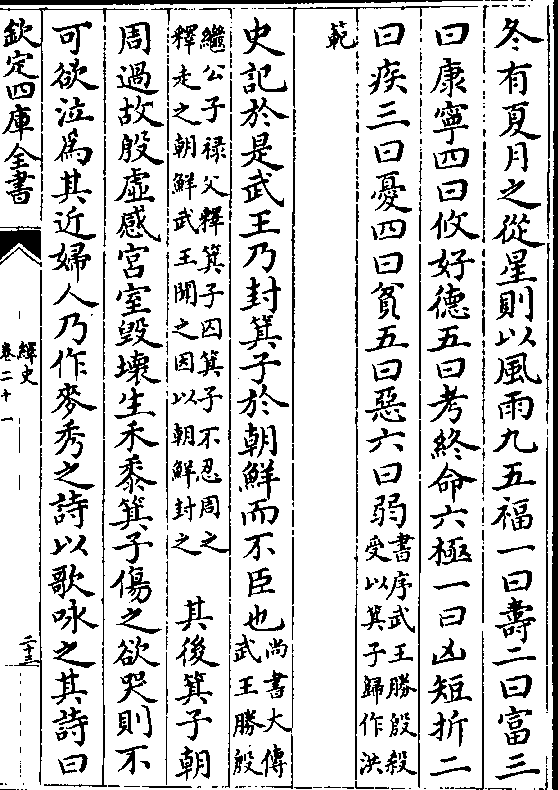 冬有夏月之從星則以風雨九五福一曰壽二曰富三
曰康寧四曰攸好德五曰考終命六極一曰凶短折二
曰疾三曰憂四曰貧五曰惡六曰弱
書序武王勝殷殺
受以箕子歸作洪
範
史記於是武王乃封箕子於朝鮮而不臣也
尚書大傳
武王勝殷
繼公子禄父釋箕子囚箕子不忍周之
釋走之朝鮮武王聞之因以朝鮮封之
其後箕子朝
周過故殷虛感宮室毀壞生禾黍箕子傷之欲哭則不
可欲泣爲其近婦人乃作麥秀之詩以歌咏之其詩曰
欽定四庫全書
繹史
卷二十一
二十三